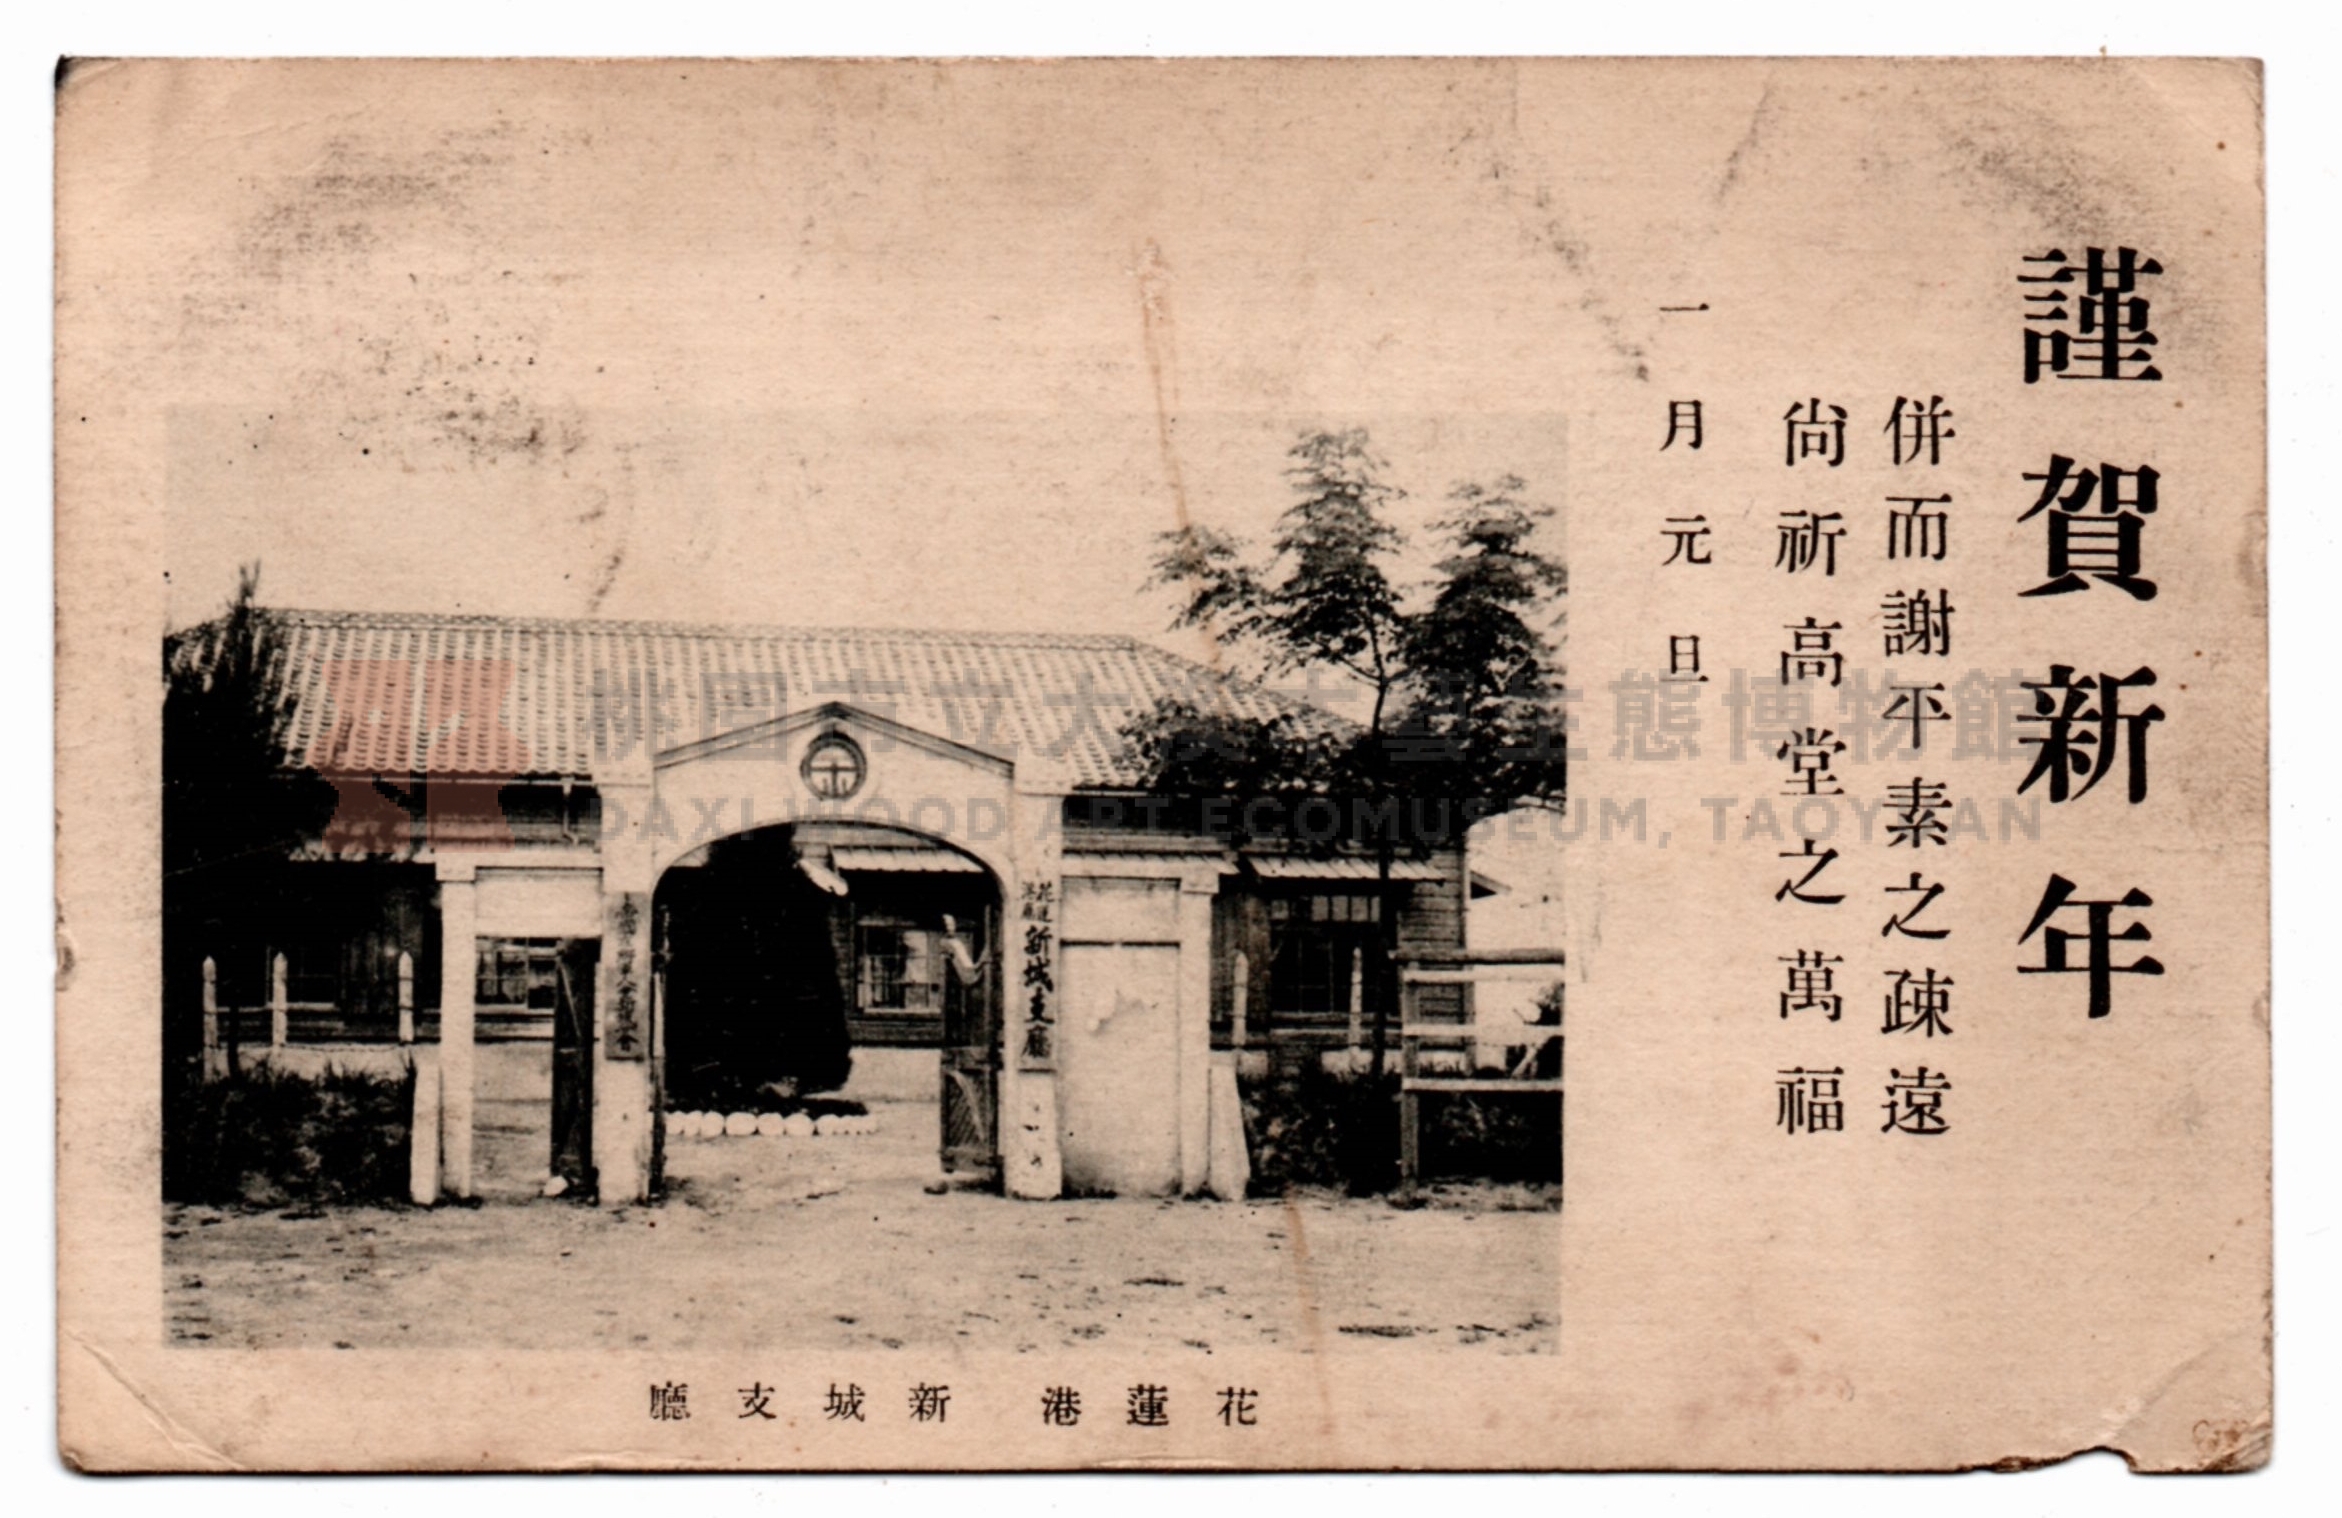 謹賀新年
併而謝平素之疎遠
尙祈高堂之萬福
一月元旦
花蓮港廳
新城支廳
花蓮港 新城支廳
桃園市立大溪木藝生態博物館
DAXI WOOD ART ECOMUSEUM, TAOYUAN